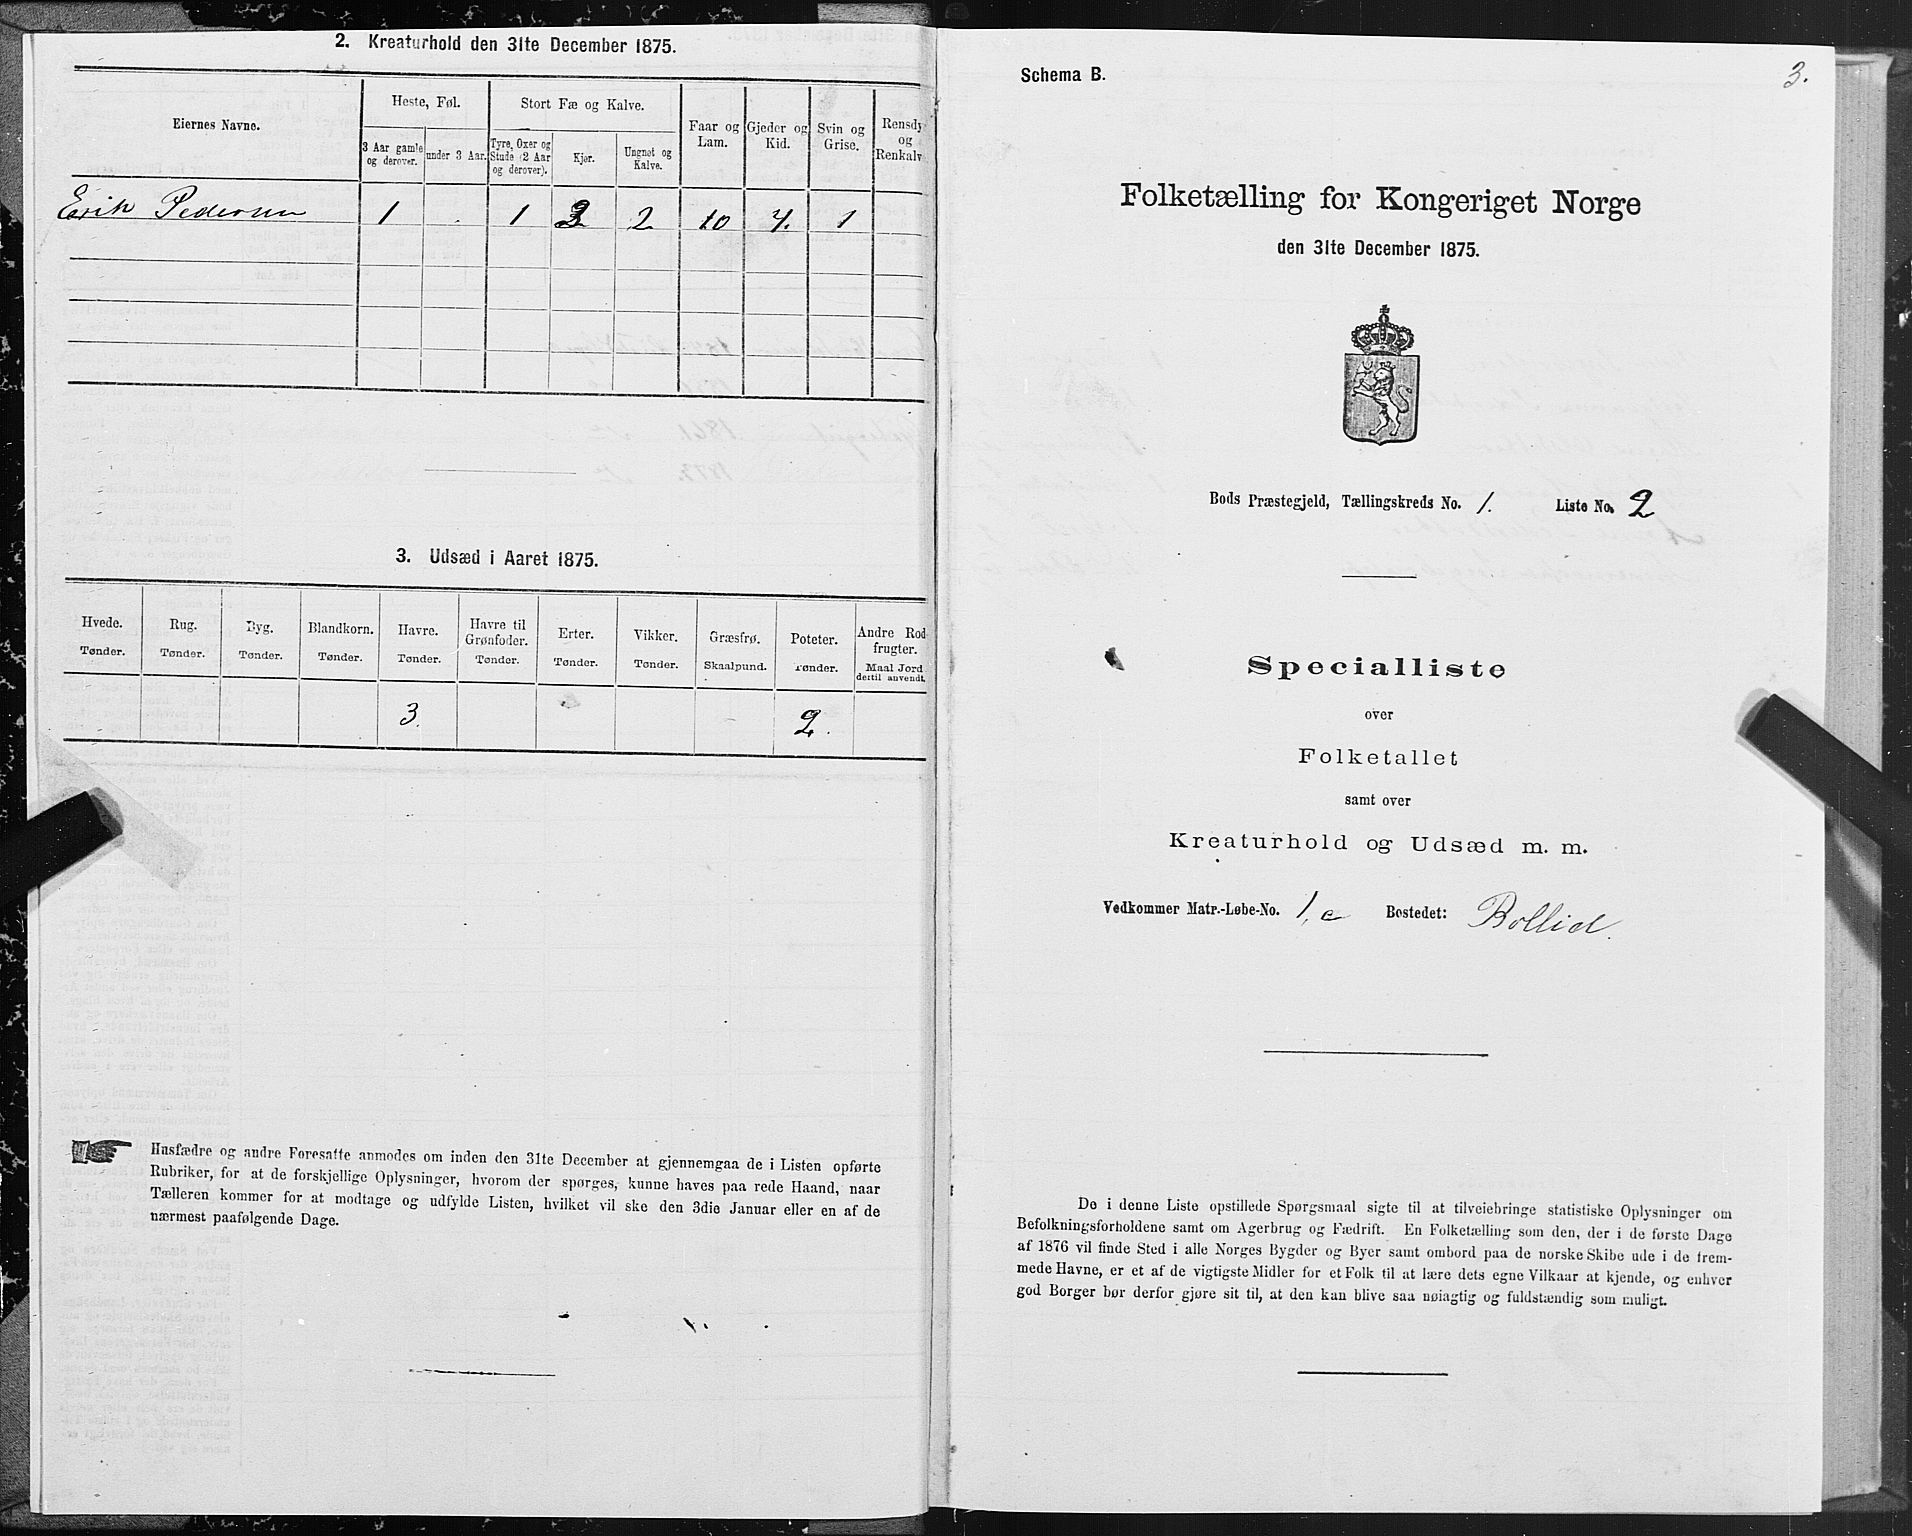 2. Kreaturhold den 31te December 1875.
Eiernes Navne.
Heste, Føl.
Stort Fæ og Kalve.
Faar og Lam.
Gjeder og Kid.
Svin og Grise.
Rensdy og Renkalv
3 Aar gamle og derover.
under 3 Aar.
Tyre, Oxer og Stude (2 Aar og derover).
Kjør.
Ungnøt og Kalve.
Erik Pedersen 1 . 1 3 2 10 4. 1
3. Udsæd i Aaret 1875.
Hvede. Rug. Byg. Blandkorn. Havre. Havre til Grønfoder. Erter. Vikker. Græsfrø. Poteter. Andre Rodfrugter.
Tønder. Tønder. Tønder. Tønder. Tønder. Tønder. Tønder. Tønder. Skaalpund. Tønder. Maal Jord dertil anvendt.
3. 2.
Husfædre og andre Foresatte anmodes om inden den 31te December at gjennemgaa de i Listen opførte
Rubriker, for at de forskjellige Oplysninger, hvorom der spørges, kunne haves paa rede Haand, naar
Tælleren kommer for at modtage og udfylde Listen, hvilket vil ske den 3die Januar eller en af de
nærmest paafølgende Dage.
3.
Schema B.
Folketælling for Kongeriget Norge
den 31te December 1875.
Bods Præstegjeld, Tællingskreds No. 1. Liste No. 2
Specialliste
over
Folketallet
samt over
Kreaturhold og Udsæd m. m.
Vedkommer Matr.-Løbe-No. 1,c Bostedet: Bollid.
De i denne Liste opstillede Spørgsmaal sigte til at tilveiebringe statistiske Oplysninger om
Befolkningsforholdene samt om Agerbrug og Fædrift. En Folketælling som den, der i de første Dage
af 1876 vil finde Sted i alle Norges Bygder og Byer samt ombord paa de norske Skibe ude i de frem-
mede Havne, er et af de vigtigste Midler for et Folk til at lære dets egne Vilkaar at kjende, og enhver
god Borger bør derfor gjøre sit til, at den kan blive saa nøiagtig og fuldstændig som muligt.